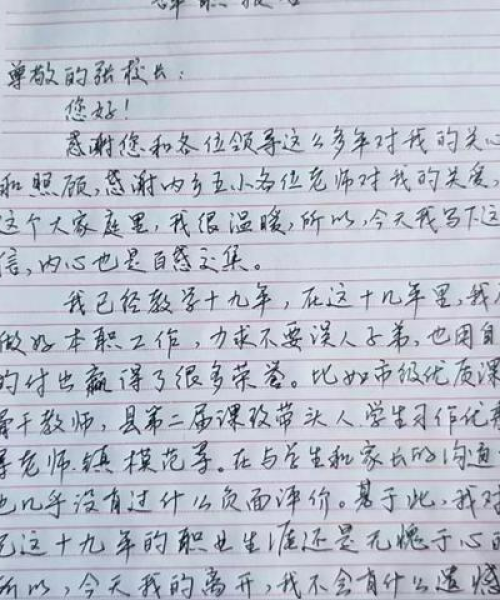 辞职报告
尊敬的张校长：
您好！
感谢您和各位领导这么多年对我的关心
和照顾，感谢内乡五小各位老师对我的关爱，
这个大家庭里，我很温暖，所以，今天我写下这
信，内心也是百感交集。
我已经教学十九年，在这十九年里，我
做好本职工作，力求不要误人子弟，也用自
的付出赢得了很多荣誉。比如市级优质课
骨干教师，县第二届课改带头人，学生习作优秀
导老师、镇模范等。在与学生和家长的沟通
也几乎没有过什么负面评价。基于此，我对
这十九年的职业生涯还是无愧于心的
所以，今天我的离开，我不会有什么遗憾